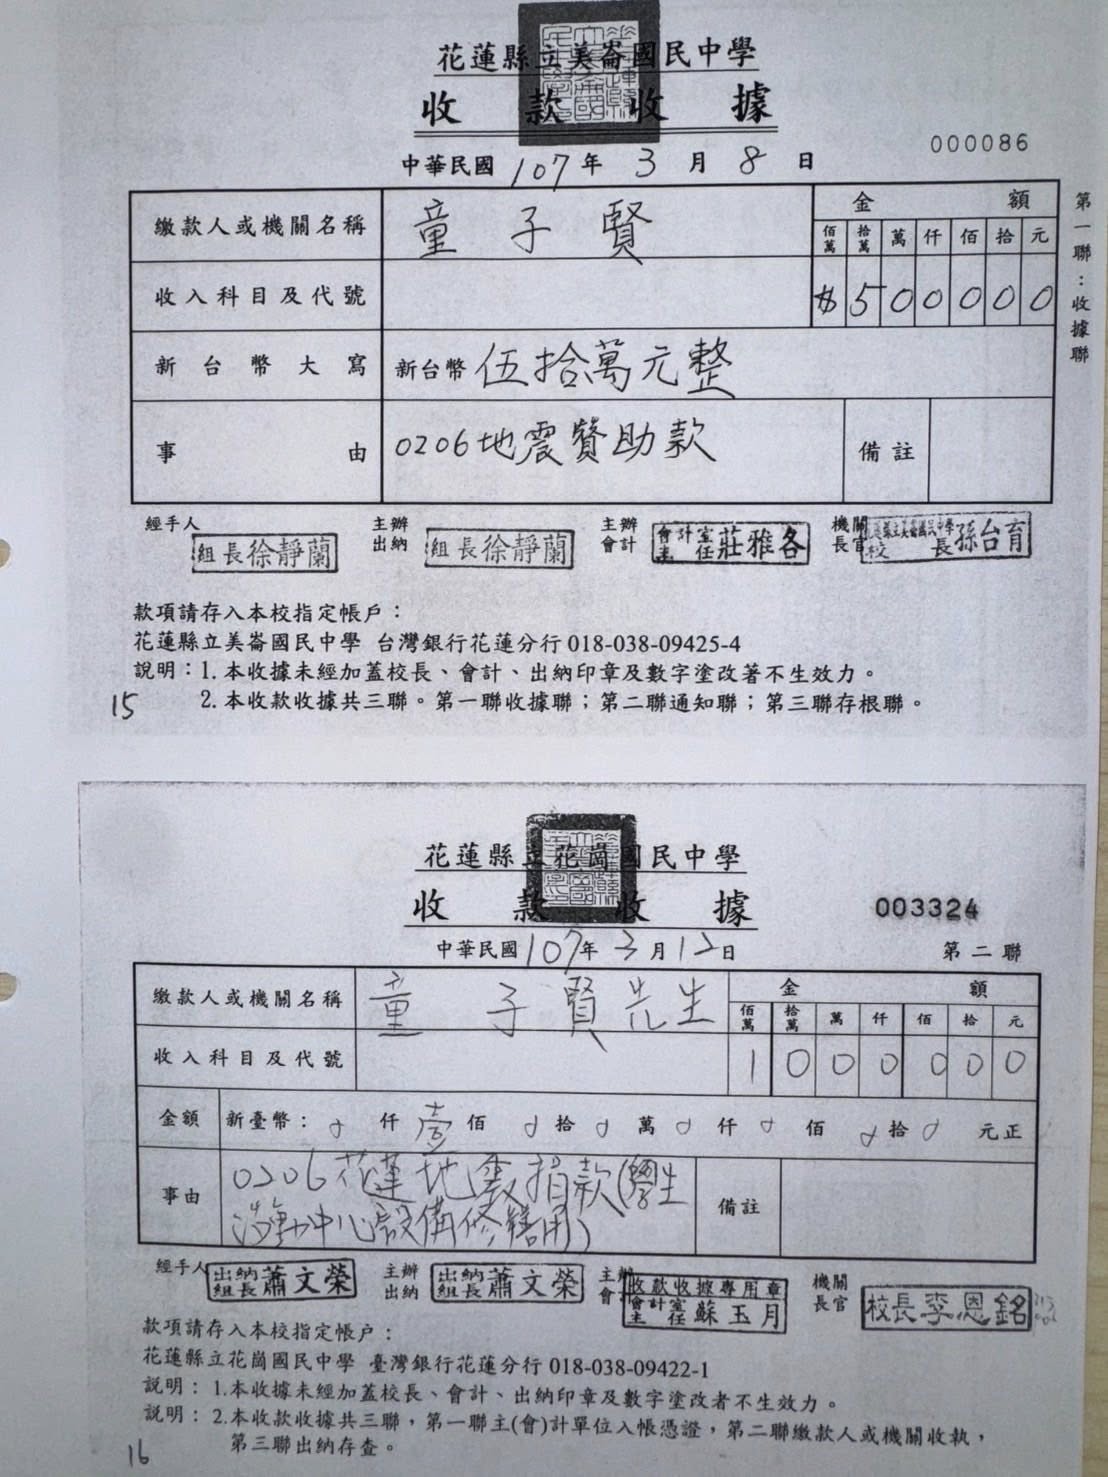 花蓮縣立美崙國民中學
收款收據
000086
中華民國 107 年 3 月 8 日
第一聯：收據聯
繳款人或機關名稱 童子賢 金額
佰萬 拾萬 萬 仟 佰 拾 元
收入科目及代號 $ 5 0 0 0 0 0
新台幣大寫 新台幣 伍拾萬元整
事由 0206地震贊助款 備註
經手人 組長徐靜蘭 主辦出納 組長徐靜蘭 主辦會計 會計室主任莊雅各 機關長官 花蓮縣立美崙國民中學校長孫台育
款項請存入本校指定帳戶：
花蓮縣立美崙國民中學 台灣銀行花蓮分行 018-038-09425-4
說明：1. 本收據未經加蓋校長、會計、出納印章及數字塗改著不生效力。
2. 本收款收據共三聯。第一聯收據聯；第二聯通知聯；第三聯存根聯。
15
花蓮縣立花崗國民中學
收款收據
003324
中華民國 107 年 3 月 12 日
第二聯
繳款人或機關名稱 童子賢先生 金額
佰萬 拾萬 萬 仟 佰 拾 元
收入科目及代號 1 0 0 0 0 0 0
金額 新臺幣： 0 仟 壹 佰 0 拾 0 萬 0 仟 0 佰 0 拾 0 元正
事由 0206花蓮地震捐款(學生
活動中心設備修繕用) 備註
經手人 出納組長蕭文榮 主辦出納 出納組長蕭文榮 主辦會計 收款收據專用章 會計室主任蘇玉月 機關長官 校長李恩銘
款項請存入本校指定帳戶：
花蓮縣立花崗國民中學 臺灣銀行花蓮分行 018-038-09422-1
說明： 1.本收據未經加蓋校長、會計、出納印章及數字塗改者不生效力。
說明： 2.本收款收據共三聯，第一聯主(會)計單位入帳憑證，第二聯繳款人或機關收執，
第三聯出納存查。
16